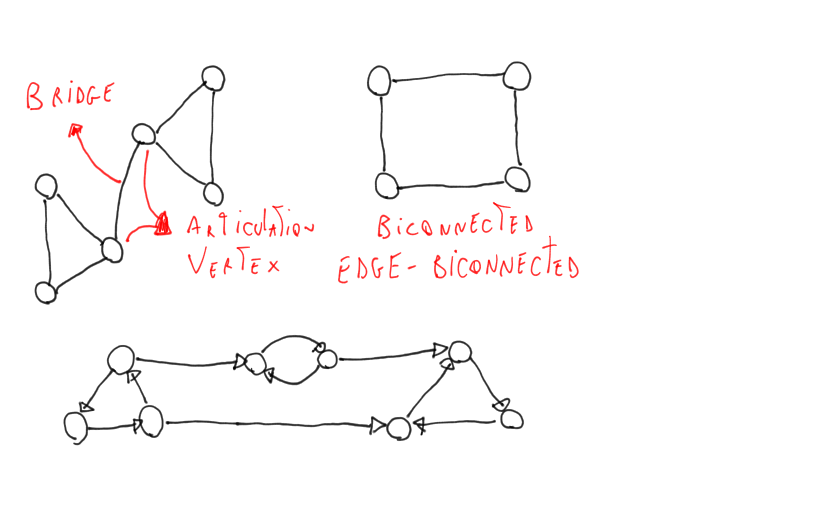 BRIDGE
ARTICULATION
VERTEX
BICONNECTED
EDGE-BICONNECTED